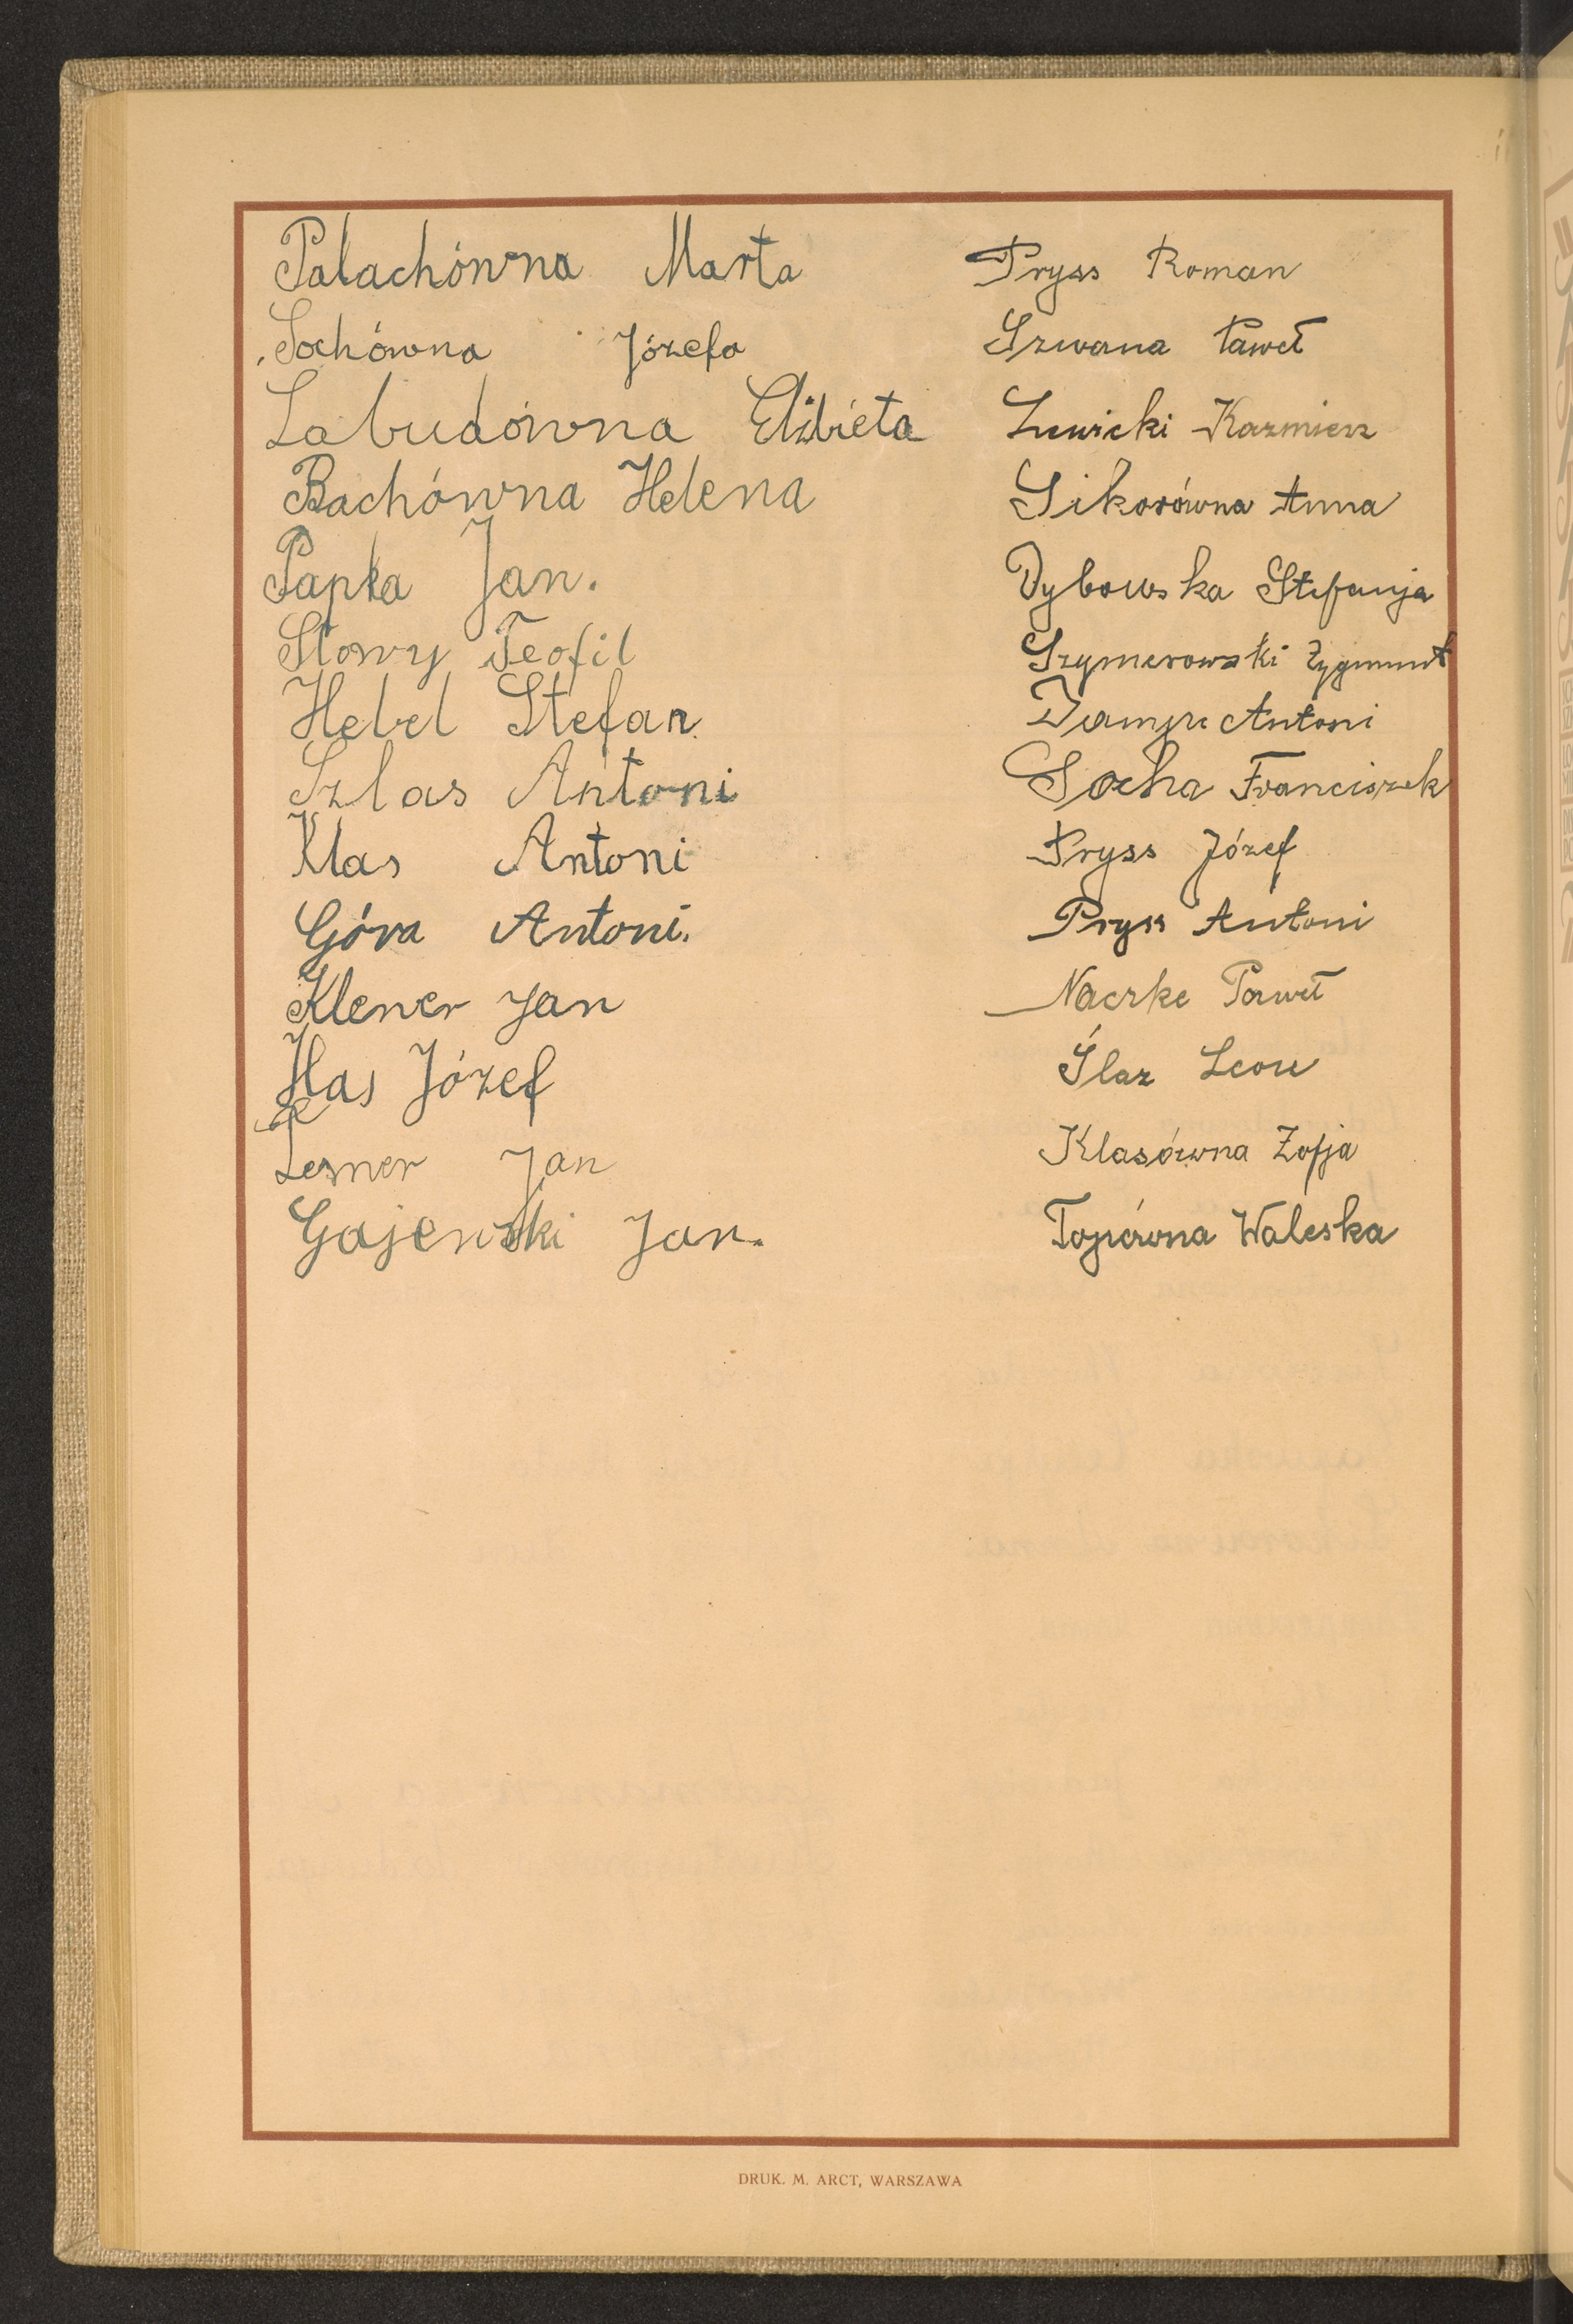 Palachówna Marta
Sochówna Józefa
Labudówna Elżbieta
Bachówna Helena
Papka Jan.
Słowy Teofil
Hebel Stefan
Szlas Antoni
Klas Antoni
Góra Antoni.
Klener Jan
Józef
Lesner Jan
Gajewski Jan.
Pryss Roman
Szwana Paweł
Kazmierz
Sikorówna Anna
Dybowska Stefanja
Szymerowski Zygmunt
Antoni
Socha Franciszek
Pryss Józef
Pryss Antoni
Naczke Paweł
Ślaz Leon
Klasówna Zofja
Topówna Waleska
DRUK. M. ARCT, WARSZAWA